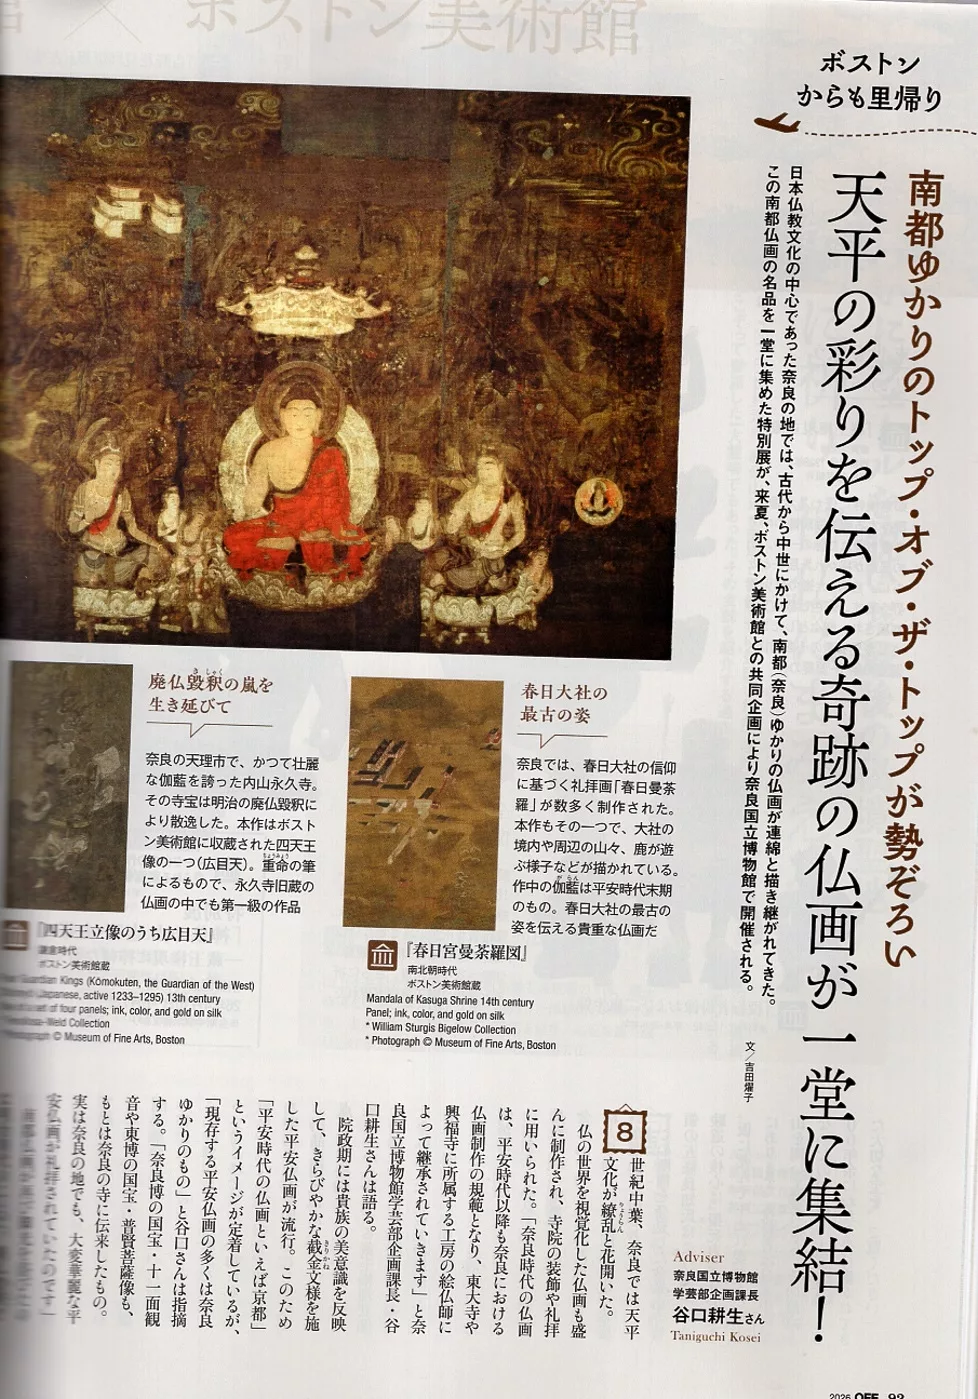 × ボストン美術館
ボストン
からも里帰り
南都ゆかりのトップ・オブ・ザ・トップが勢ぞろい
天平の彩りを伝える奇跡の仏画が一堂に集結！
日本仏教文化の中心であった奈良の地では、古代から中世にかけて、南都（奈良）ゆかりの仏画が連綿と描き継がれてきた。
この南都仏画の名品を一堂に集めた特別展が、来夏、ボストン美術館との共同企画により奈良国立博物館で開催される。
文／吉田燿子
春日大社の
最古の姿
奈良では、春日大社の信仰
に基づく礼拝画「春日曼荼
羅」が数多く制作された。
本作もその一つで、大社の
境内や周辺の山々、鹿が遊
ぶ様子などが描かれている。
作中の伽藍は平安時代末期
のもの。春日大社の最古の
姿を伝える貴重な仏画だ
『春日宮曼荼羅図』
南北朝時代
ボストン美術館蔵
Mandala of Kasuga Shrine 14th century
Panel; ink, color, and gold on silk
* William Sturgis Bigelow Collection
* Photograph © Museum of Fine Arts, Boston
廃仏毀釈の嵐を
生き延びて
奈良の天理市で、かつて壮麗
な伽藍を誇った内山永久寺。
その寺宝は明治の廃仏毀釈に
より散逸した。本作はボスト
ン美術館に収蔵された四天王
像の一つ（広目天）。重命の筆
によるもので、永久寺旧蔵の
仏画の中でも第一級の作品
『四天王立像のうち広目天』
鎌倉時代
ボストン美術館蔵
Guardian Kings (Kōmokuten, the Guardian of the West)
(Japanese, active 1233–1295) 13th century
set of four panels; ink, color, and gold on silk
-Weld Collection
Photograph © Museum of Fine Arts, Boston
Adviser
奈良国立博物館
学芸部企画課長
谷口耕生さん
Taniguchi Kosei
8世紀中葉、奈良では天平
文化が繚乱と花開いた。
仏の世界を視覚化した仏画も盛
んに制作され、寺院の装飾や礼拝
に用いられた。「奈良時代の仏画
は、平安時代以降も奈良における
仏画制作の規範となり、東大寺や
興福寺に所属する工房の絵仏師に
よって継承されていきます」と奈
良国立博物館学芸部企画課長・谷
口耕生さんは語る。
院政期には貴族の美意識を反映
して、きらびやかな截金文様を施
した平安仏画が流行。このため
「平安時代の仏画といえば京都」
というイメージが定着しているが、
「現存する平安仏画の多くは奈良
ゆかりのもの」と谷口さんは指摘
する。「奈良博の国宝・十一面観
音や東博の国宝・普賢菩薩像も、
もとは奈良の寺に伝来したもの。
実は奈良の地でも、大変華麗な平
安仏画が礼拝されていたのです」
2026 OFF 92